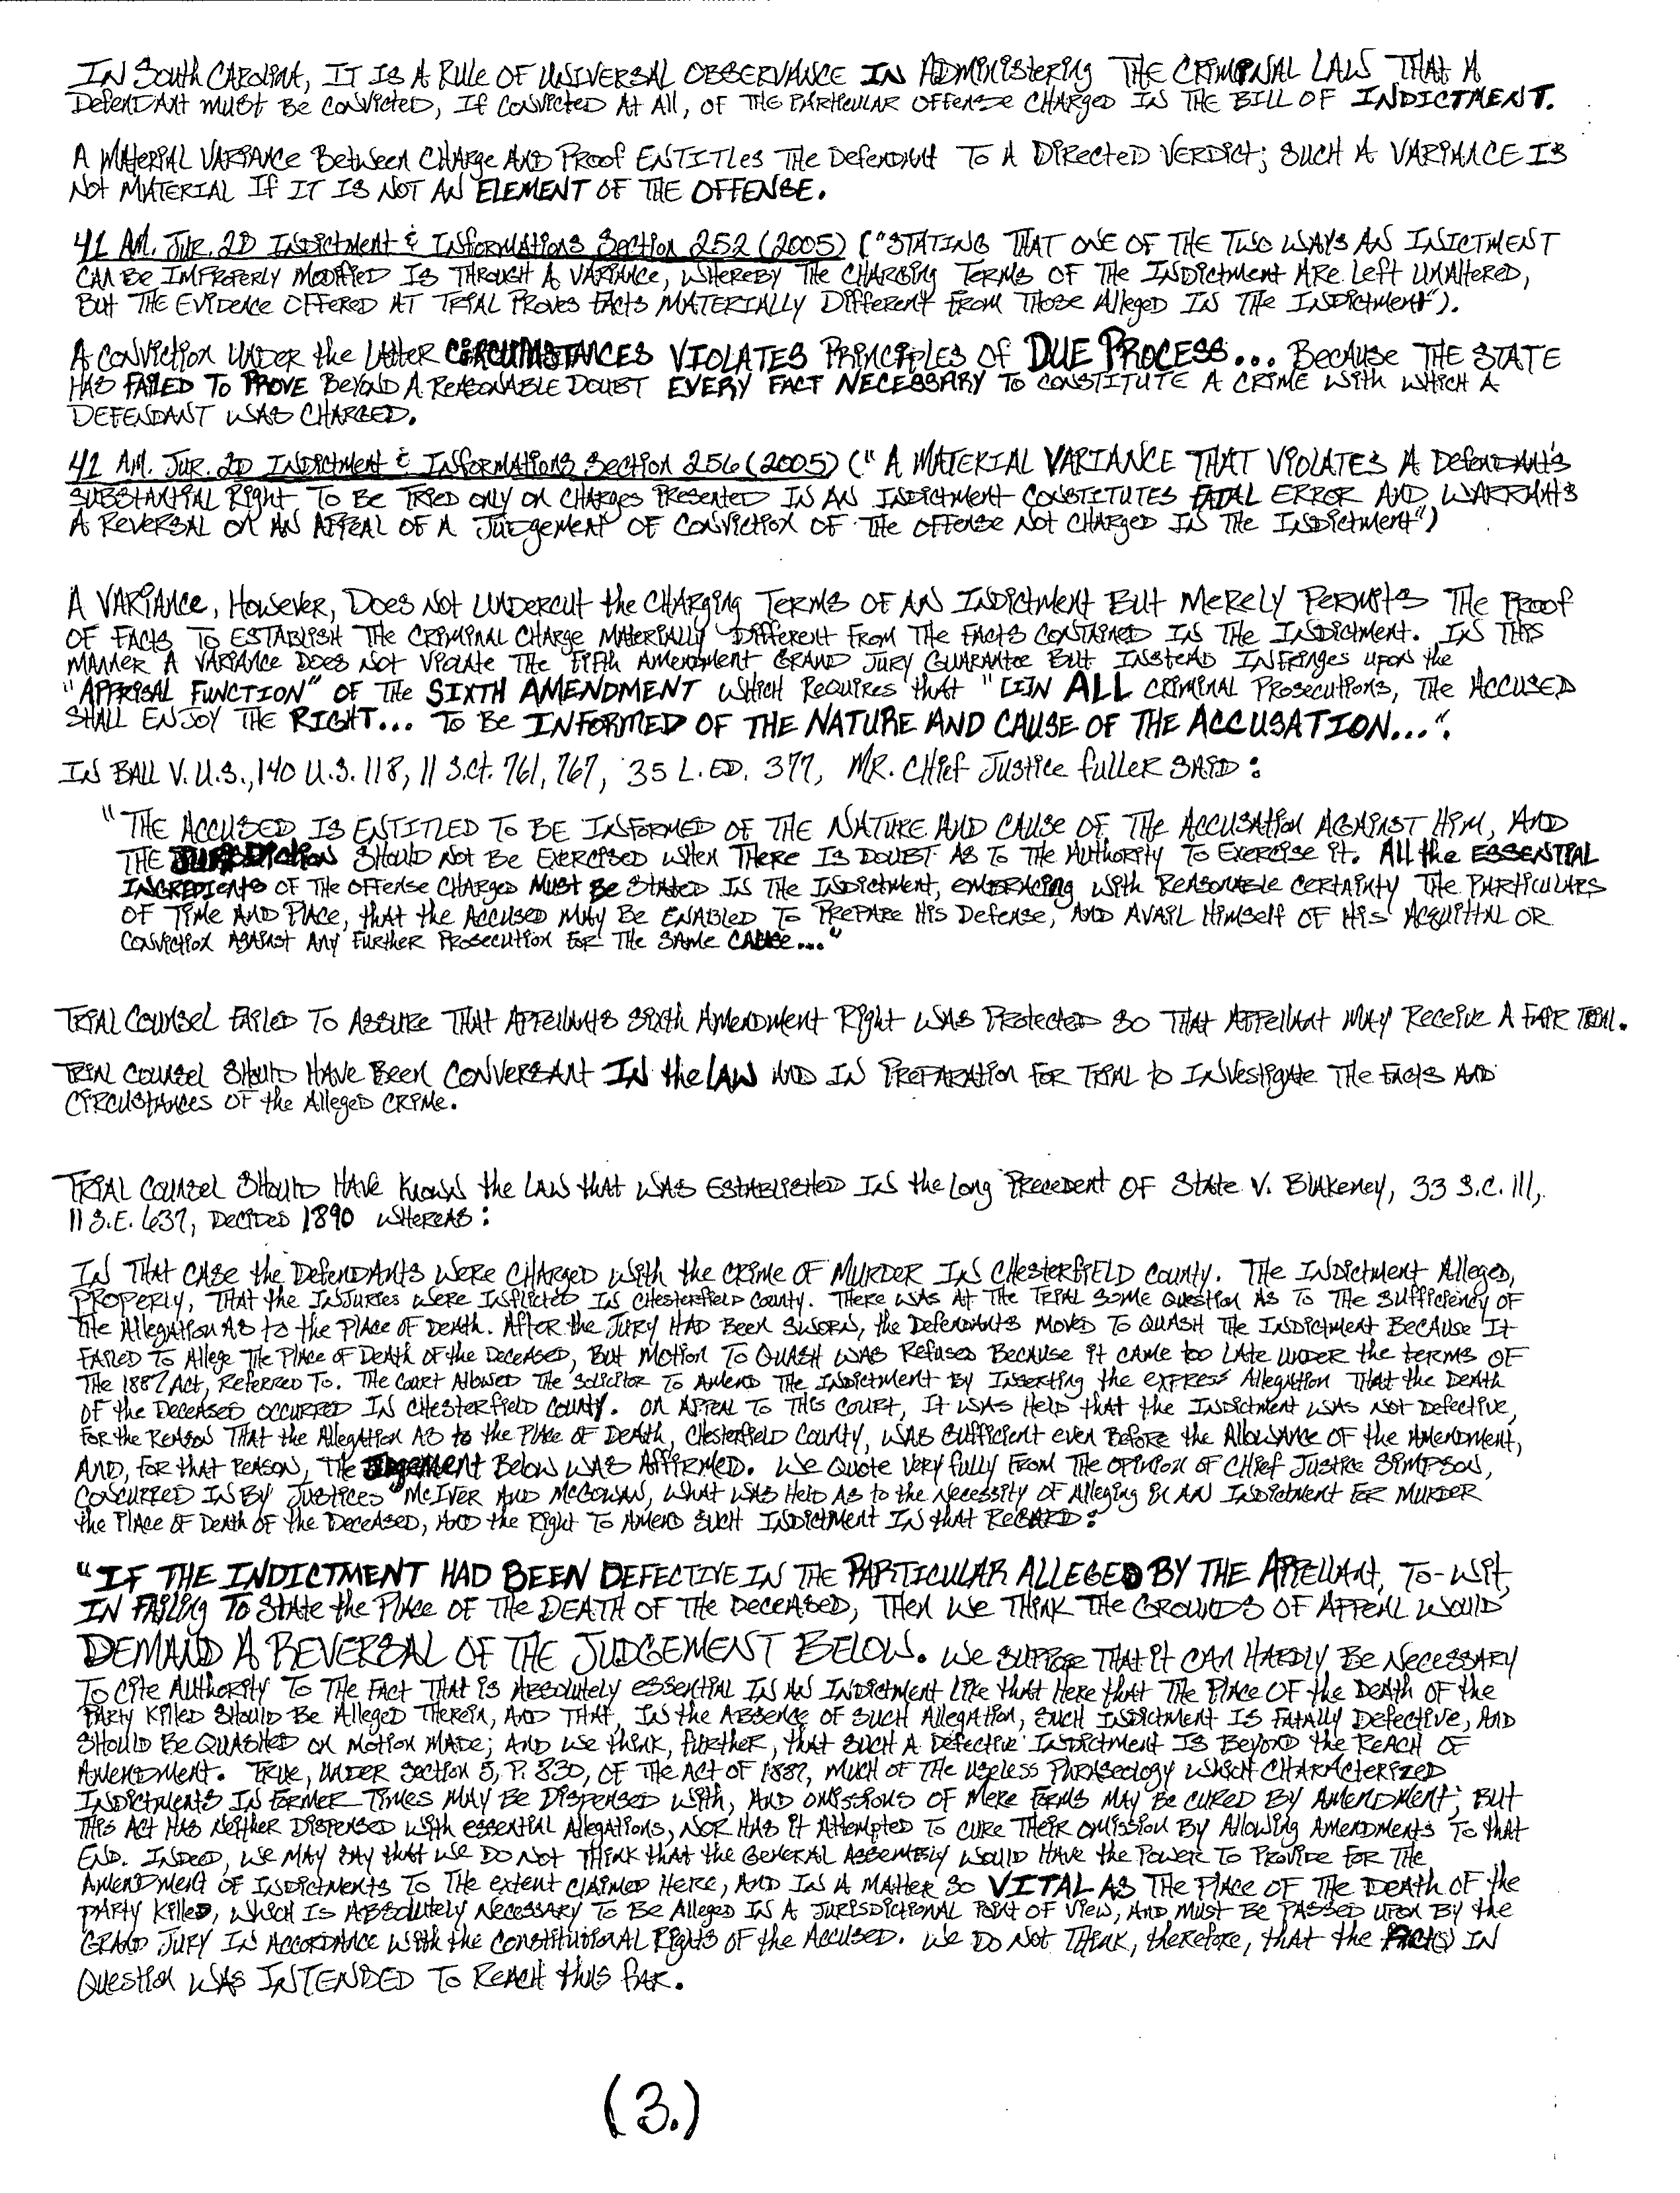 IN SOUTH CAROLINA, IT IS A RULE OF UNIVERSAL OBSERVANCE IN ADMINISTERING THE CRIMINAL LAW THAT A
DEFENDANT MUST BE CONVICTED, IF CONVICTED AT ALL, OF THE PARTICULAR OFFENSE CHARGED IN THE BILL OF INDICTMENT.
A MATERIAL VARIANCE BETWEEN CHARGE AND PROOF ENTITLES THE DEFENDANT TO A DIRECTED VERDICT; SUCH A VARIANCE IS
NOT MATERIAL IF IT IS NOT AN ELEMENT OF THE OFFENSE.
41 AM. JUR. 2D INDICTMENT & INFORMATIONS SECTION 252 (2005) ("STATING THAT ONE OF THE TWO WAYS AN INICTMENT
CAN BE IMPROPERLY MODIFIED IS THROUGH A VARIANCE, WHEREBY THE CHARGING TERMS OF THE INDICTMENT ARE LEFT UNALTERED,
BUT THE EVIDENCE OFFERED AT TRIAL PROVES FACTS MATERIALLY DIFFERENT FROM THOSE ALLEGED IN THE INDICTMENT").
A CONVICTION UNDER THE LATTER CIRCUMSTANCES VIOLATES PRINCIPLES OF DUE PROCESS... BECAUSE THE STATE
HAS FAILED TO PROVE BEYOND A REASONABLE DOUBT EVERY FACT NECESSARY TO CONSTITUTE A CRIME WITH WHICH A
DEFENDANT WAS CHARGED.
41 AM. JUR. 2D INDICTMENT & INFORMATIONS SECTION 256 (2005) ("A MATERIAL VARIANCE THAT VIOLATES A DEFENDANT'S
SUBSTANTIAL RIGHT TO BE TRIED ONLY ON CHARGES PRESENTED IN AN INDICTMENT CONSTITUTES FATAL ERROR AND WARRANTS
A REVERSAL ON AN APPEAL OF A JUDGEMENT OF CONVICTION OF THE OFFENSE NOT CHARGED IN THE INDICTMENT")
A VARIANCE, HOWEVER, DOES NOT UNDERCUT THE CHARGING TERMS OF AN INDICTMENT BUT MERELY PERMITS THE PROOF
OF FACTS TO ESTABLISH THE CRIMINAL CHARGE MATERIALLY DIFFERENT FROM THE FACTS CONTAINED IN THE INDICTMENT. IN THIS
MANNER A VARIANCE DOES NOT VIOLATE THE FIFTH AMENDMENT GRAND JURY GUARANTEE BUT INSTEAD INFRINGES UPON THE
"APPRISAL FUNCTION" OF THE SIXTH AMENDMENT WHICH REQUIRES THAT "[I]N ALL CRIMINAL PROSECUTIONS, THE ACCUSED
SHALL ENJOY THE RIGHT... TO BE INFORMED OF THE NATURE AND CAUSE OF THE ACCUSATION...".
IN BALL V. U.S., 140 U.S. 118, 11 S.Ct. 761, 767, 35 L. ED. 377, MR. CHIEF JUSTICE FULLER SAID:
"THE ACCUSED IS ENTITLED TO BE INFORMED OF THE NATURE AND CAUSE OF THE ACCUSATION AGAINST HIM, AND
THE JURISDICTION SHOULD NOT BE EXERCISED WHEN THERE IS DOUBT AS TO THE AUTHORITY TO EXERCISE IT. ALL THE ESSENTIAL
INGREDIENTS OF THE OFFENSE CHARGED MUST BE STATED IN THE INDICTMENT, EMBRACING WITH REASONABLE CERTAINTY THE PARTICULARS
OF TIME AND PLACE, THAT THE ACCUSED MAY BE ENABLED TO PREPARE HIS DEFENSE, AND AVAIL HIMSELF OF HIS ACQUITTAL OR
CONVICTION AGAINST ANY FURTHER PROSECUTION FOR THE SAME CAUSE..."
TRIAL COUNSEL FAILED TO ASSURE THAT APPELLANTS SIXTH AMENDMENT RIGHT WAS PROTECTED SO THAT APPELLANT MAY RECEIVE A FAIR TRIAL.
TRIAL COUNSEL SHOULD HAVE BEEN CONVERSANT IN THE LAW AND IN PREPARATION FOR TRIAL TO INVESTIGATE THE FACTS AND
CIRCUSTANCES OF THE ALLEGED CRIME.
TRIAL COUNSEL SHOULD HAVE KNOWN THE LAW THAT WAS ESTABLISHED IN THE LONG PRECEDENT OF STATE V. BLAKENEY, 33 S.C. 111,
11 S.E. 637, DECIDED 1890 WHEREAS:
IN THAT CASE THE DEFENDANTS WERE CHARGED WITH THE CRIME OF MURDER IN CHESTERFIELD COUNTY. THE INDICTMENT ALLEGED,
PROPERLY, THAT THE INJURIES WERE INFLICTED IN CHESTERFIELD COUNTY. THERE WAS AT THE TRIAL SOME QUESTION AS TO THE SUFFICIENCY OF
THE ALLEGATION AS TO THE PLACE OF DEATH. AFTER THE JURY HAD BEEN SWORN, THE DEFENDANTS MOVED TO QUASH THE INDICTMENT BECAUSE IT
FAILED TO ALLEGE THE PLACE OF DEATH OF THE DECEASED, BUT MOTION TO QUASH WAS REFUSED BECAUSE IT CAME TOO LATE UNDER THE TERMS OF
THE 1887 ACT, REFERRED TO. THE COURT ALLOWED THE SOLICITOR TO AMEND THE INDICTMENT BY INSERTING THE EXPRESS ALLEGATION THAT THE DEATH
OF THE DECEASED OCCURRED IN CHESTERFIELD COUNTY. ON APPEAL TO THIS COURT, IT WAS HELP THAT THE INDICTMENT WAS NOT DEFECTIVE,
FOR THE REASON THAT THE ALLEGATION AS TO THE PLACE OF DEATH, CHESTERFIELD COUNTY, WAS SUFFICIENT EVEN BEFORE THE ALLOWANCE OF THE AMENDMENT,
AND, FOR THAT REASON, THE JUDGEMENT BELOW WAS AFFIRMED. WE QUOTE VERY FULLY FROM THE OPINION OF CHIEF JUSTICE SIMPSON,
CONCURRED IN BY JUSTICES MCIVER AND MCGOWAN, WHAT WAS HELD AS TO THE NECESSITY OF ALLEGING IN AN INDICTMENT FOR MURDER
THE PLACE OF DEATH OF THE DECEASED, AND THE RIGHT TO AMEND SUCH INDICTMENT IN THAT REGARD:
"IF THE INDICTMENT HAD BEEN DEFECTIVE IN THE PARTICULAR ALLEGED BY THE APPELLANT, TO-WIT,
IN FAILING TO STATE THE PLACE OF THE DEATH OF THE DECEASED, THEN WE THINK THE GROUNDS OF APPEAL WOULD
DEMAND A REVERSAL OF THE JUDGEMENT BELOW. WE SUPPOSE THAT IT CAN HARDLY BE NECESSARY
TO CITE AUTHORITY TO THE FACT THAT IS ABSOLUTELY ESSENTIAL IN AN INDICTMENT LIKE THAT HERE THAT THE PLACE OF THE DEATH OF THE
PARTY KILLED SHOULD BE ALLEGED THEREIN, AND THAT, IN THE ABSENCE OF SUCH ALLEGATION, SUCH INDICTMENT IS FATALLY DEFECTIVE, AND
SHOULD BE QUASHED ON MOTION MADE; AND WE THINK, FURTHER, THAT SUCH A DEFECTIVE INDICTMENT IS BEYOND THE REACH OF
AMENDMENT. TRUE, UNDER SECTION 5, P. 830, OF THE ACT OF 1887, MUCH OF THE USELESS PHRASEOLOGY WHICH CHARACTERIZED
INDICTMENTS IN FORMER TIMES MAY BE DISPENSED WITH, AND OMISSIONS OF MERE FORMS MAY BE CURED BY AMENDMENT; BUT
THIS ACT HAS NEITHER DISPENSED WITH ESSENTIAL ALLEGATIONS, NOR HAS IT ATTEMPTED TO CURE THEIR OMISSION BY ALLOWING AMENDMENTS TO THAT
END. INDEED, WE MAY SAY THAT WE DO NOT THINK THAT THE GENERAL ASSEMBLY WOULD HAVE THE POWER TO PROVIDE FOR THE
AMENDMENT OF INDICTMENTS TO THE EXTENT CLAIMED HERE, AND IN A MATTER SO VITAL AS THE PLACE OF THE DEATH OF THE
PARTY KILLED, WHICH IS ABSOLUTELY NECESSARY TO BE ALLEGED IN A JURISDICTIONAL POINT OF VIEW, AND MUST BE PASSED UPON BY THE
GRAND JURY IN ACCORDANCE WITH THE CONSTITUTIONAL RIGHTS OF THE ACCUSED. WE DO NOT THINK, THEREFORE, THAT THE IN
QUESTION WAS INTENDED TO REACH THUS FAR.
(3.)